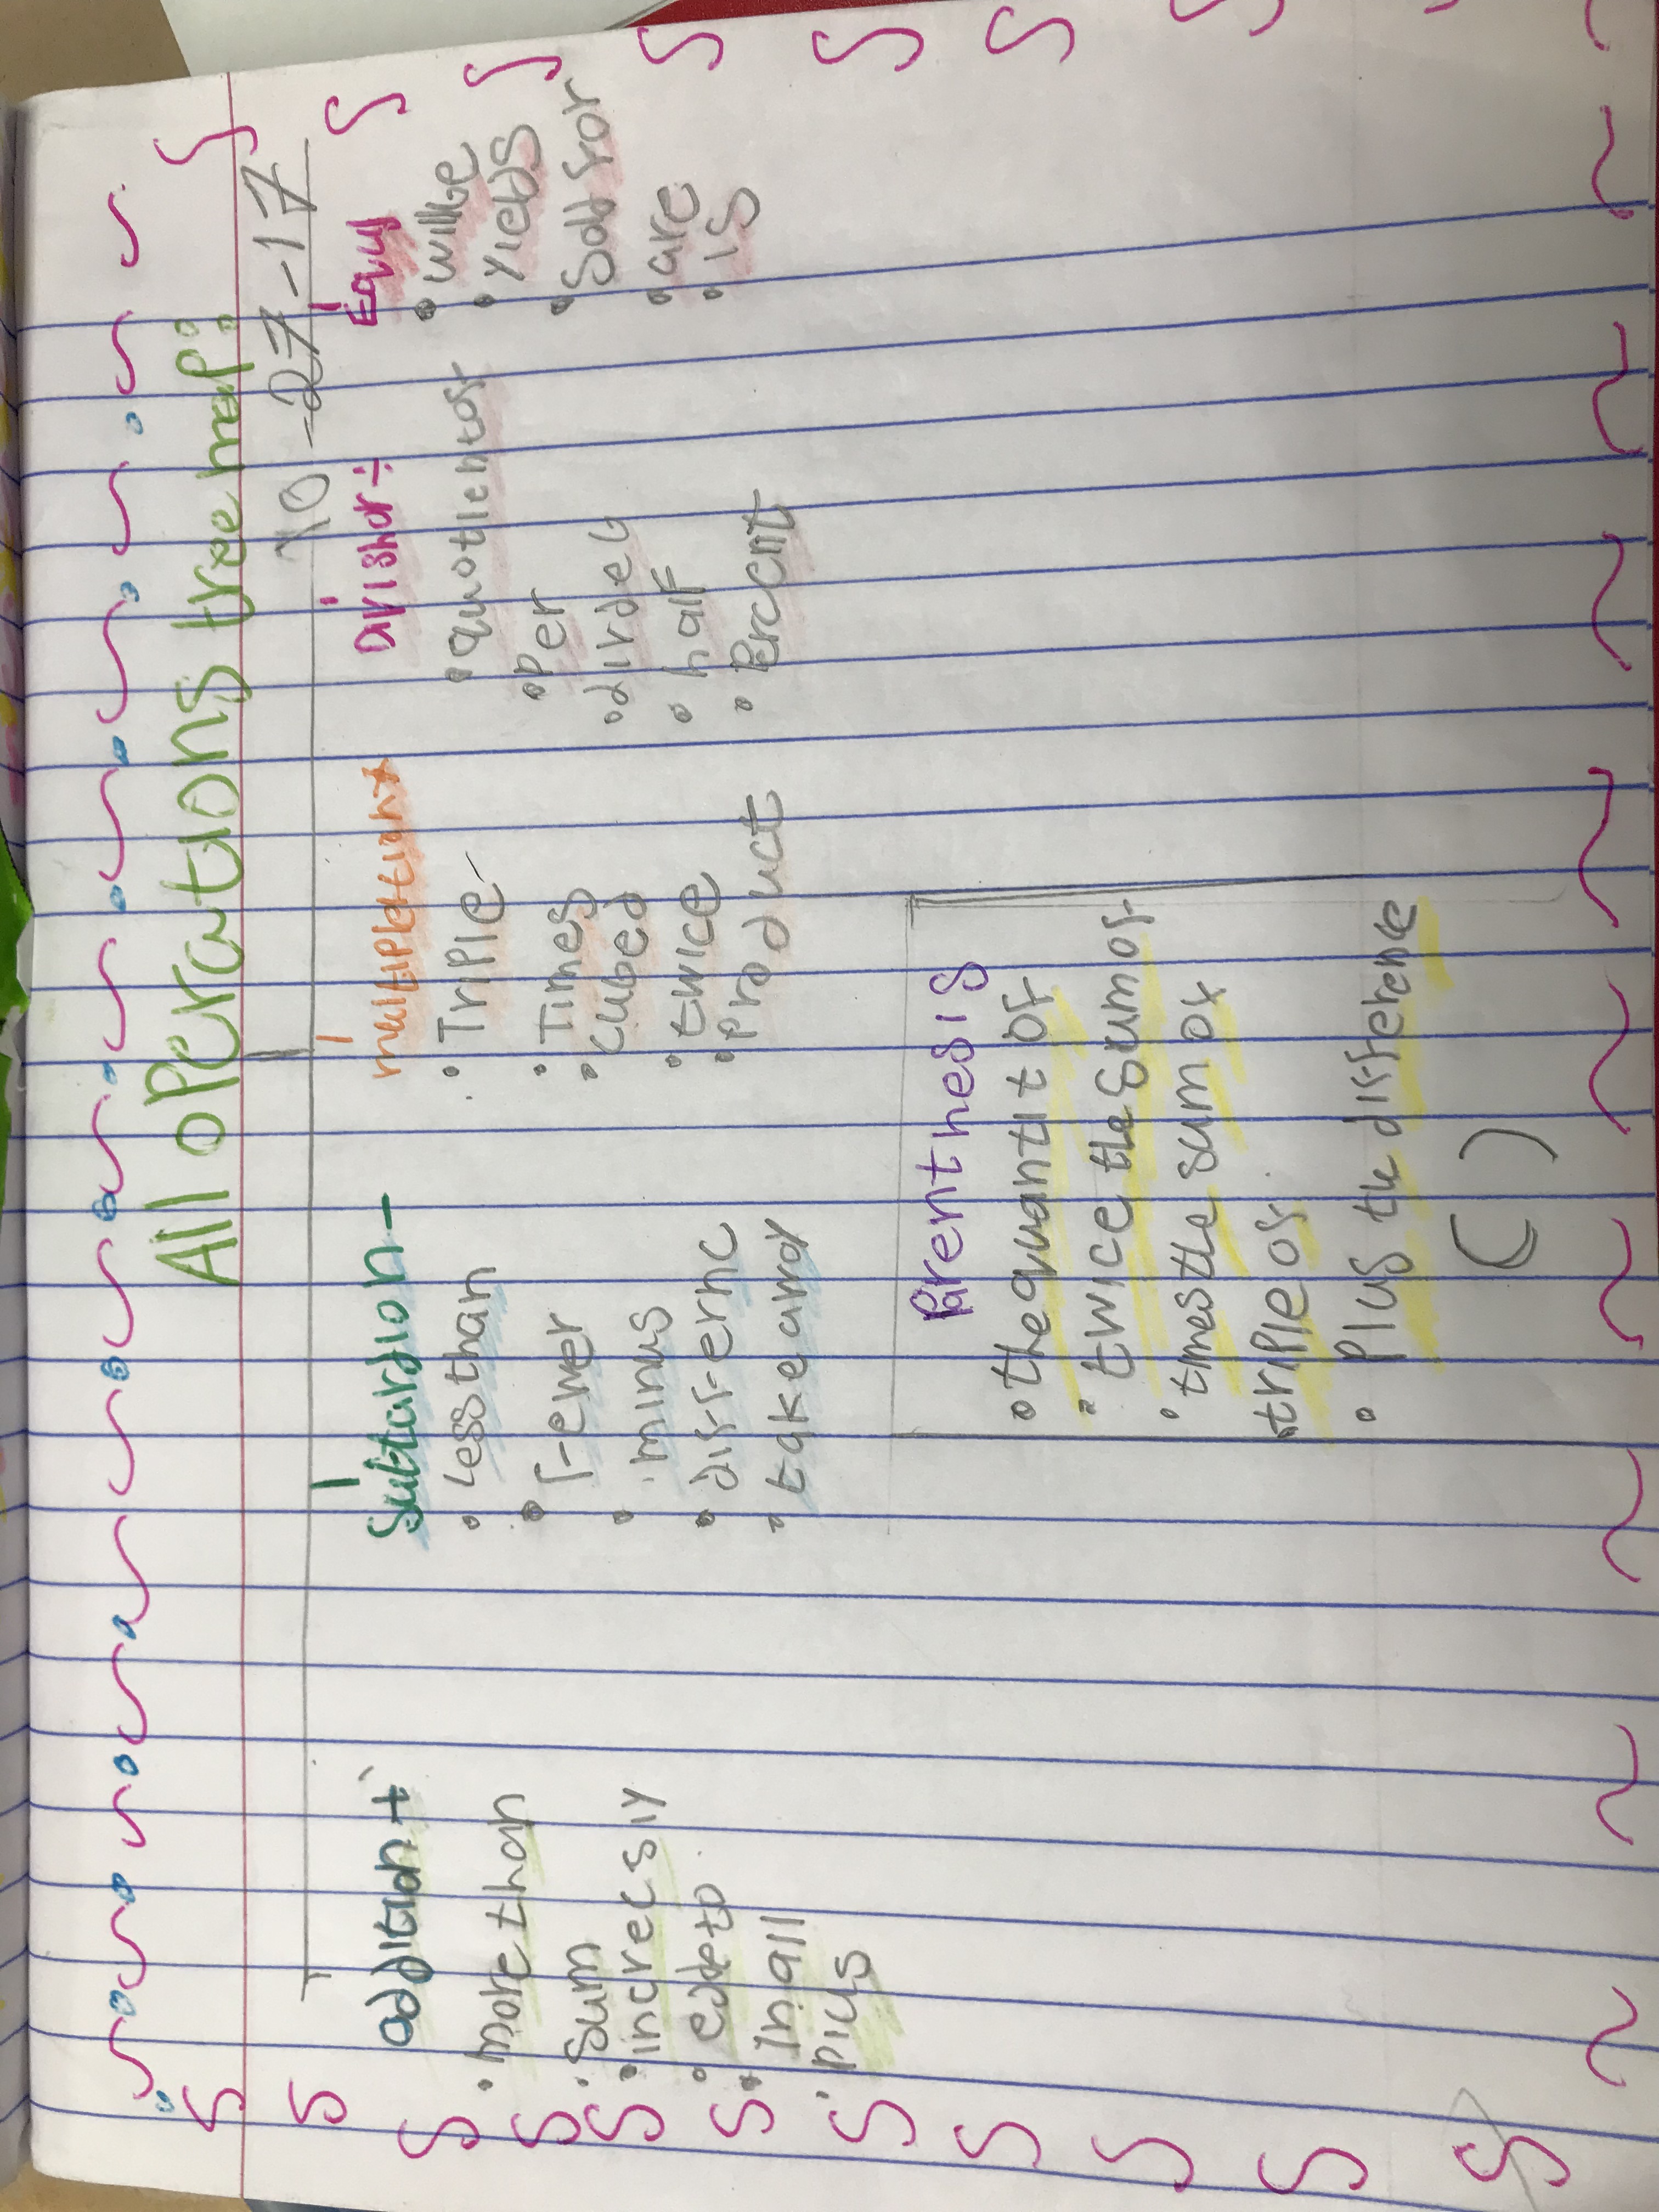 All operations tree map:
10-27-17
addition +
• more than
• Sum
• increcsly
• eddeto
• In all
• plus
Subtardion -
• Less than
• fewer
• minus
• differnc
• take away
multipletion x
• Triple
• Times
• cubed
• twice
• Product
Divishor ÷
• quotient of
• Per
• divided
• half
• Percent
Equl
• will be
• Yields
• Sold for
• are
• is
Parenthesis
• the quantit of
• twice the sum of
• times the sum of
triple of
• Plus the difference
( )